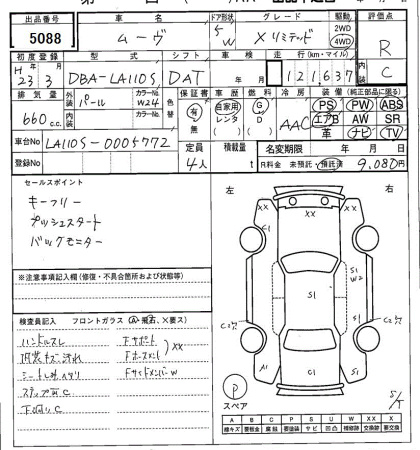 出品番号 車名 ドア形状 グレード 駆動 評価点
5088 ムーヴ 5 W Xリミテッド 2WD 4WD R
初度登録 型式 シフト 車検 走行(km・マイル) 内装
H23 3 DBA-LA110S DAT 121,637 C
排気量 外装 カラーNo. 色替 保証書 車歴 燃料 冷房 装備(純正部品に限る)
660 c.c. パール W24 有 自家用 G AAC PS PW ABS
内装 カラーNo. 無 レンタ D エアB AW SR
( ) ( ) 革 ナビ TV
車台No LA110S-0005772 定員 積載量 名変期限 年 月 日
登録No 4人 t R料金 未預託・預託済 9,080円
セールスポイント
キーフリー
プッシュスタート
バックモニター
左 右
XX XX XX
C1
S1
S1
W2
S1
A1 C1 S1
※注意事項記入欄(修復・不具合箇所および状態等)
検査員記入 フロントガラス(A・飛石、×要ス)
ハンドルスレ Fサポート
内装キズ汚れ XX
シート Fサイドメンバー W
C
下廻りC
P
スペア
5/T
A B C P S U W X XX X
線キズ 要板金 腐蝕 要塗装 サビ 凹凸 補修跡 交換跡 要交換